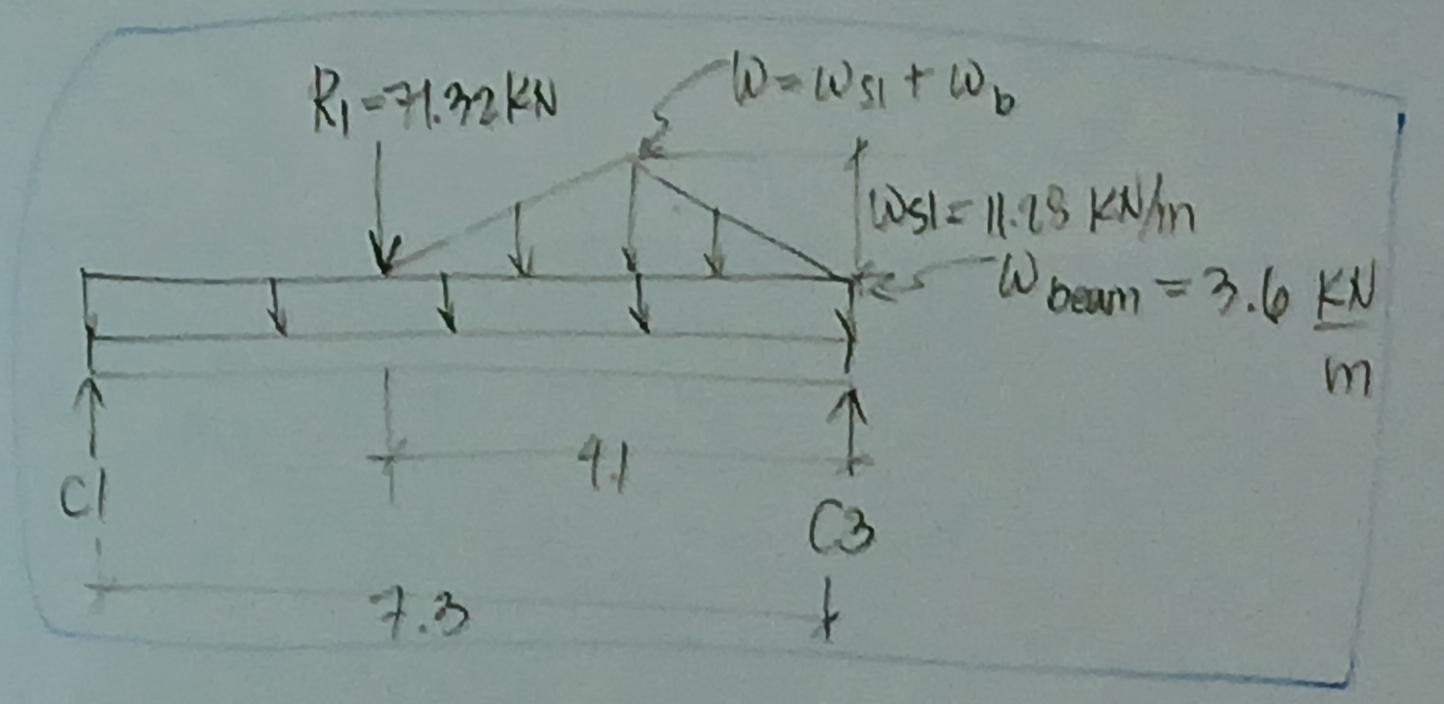 R1=71.32KN
W=WSl + Wb
WSl = 11.28 KN/m
Wbeam = 3.6 KN/m
4.1
C1
C3
7.3